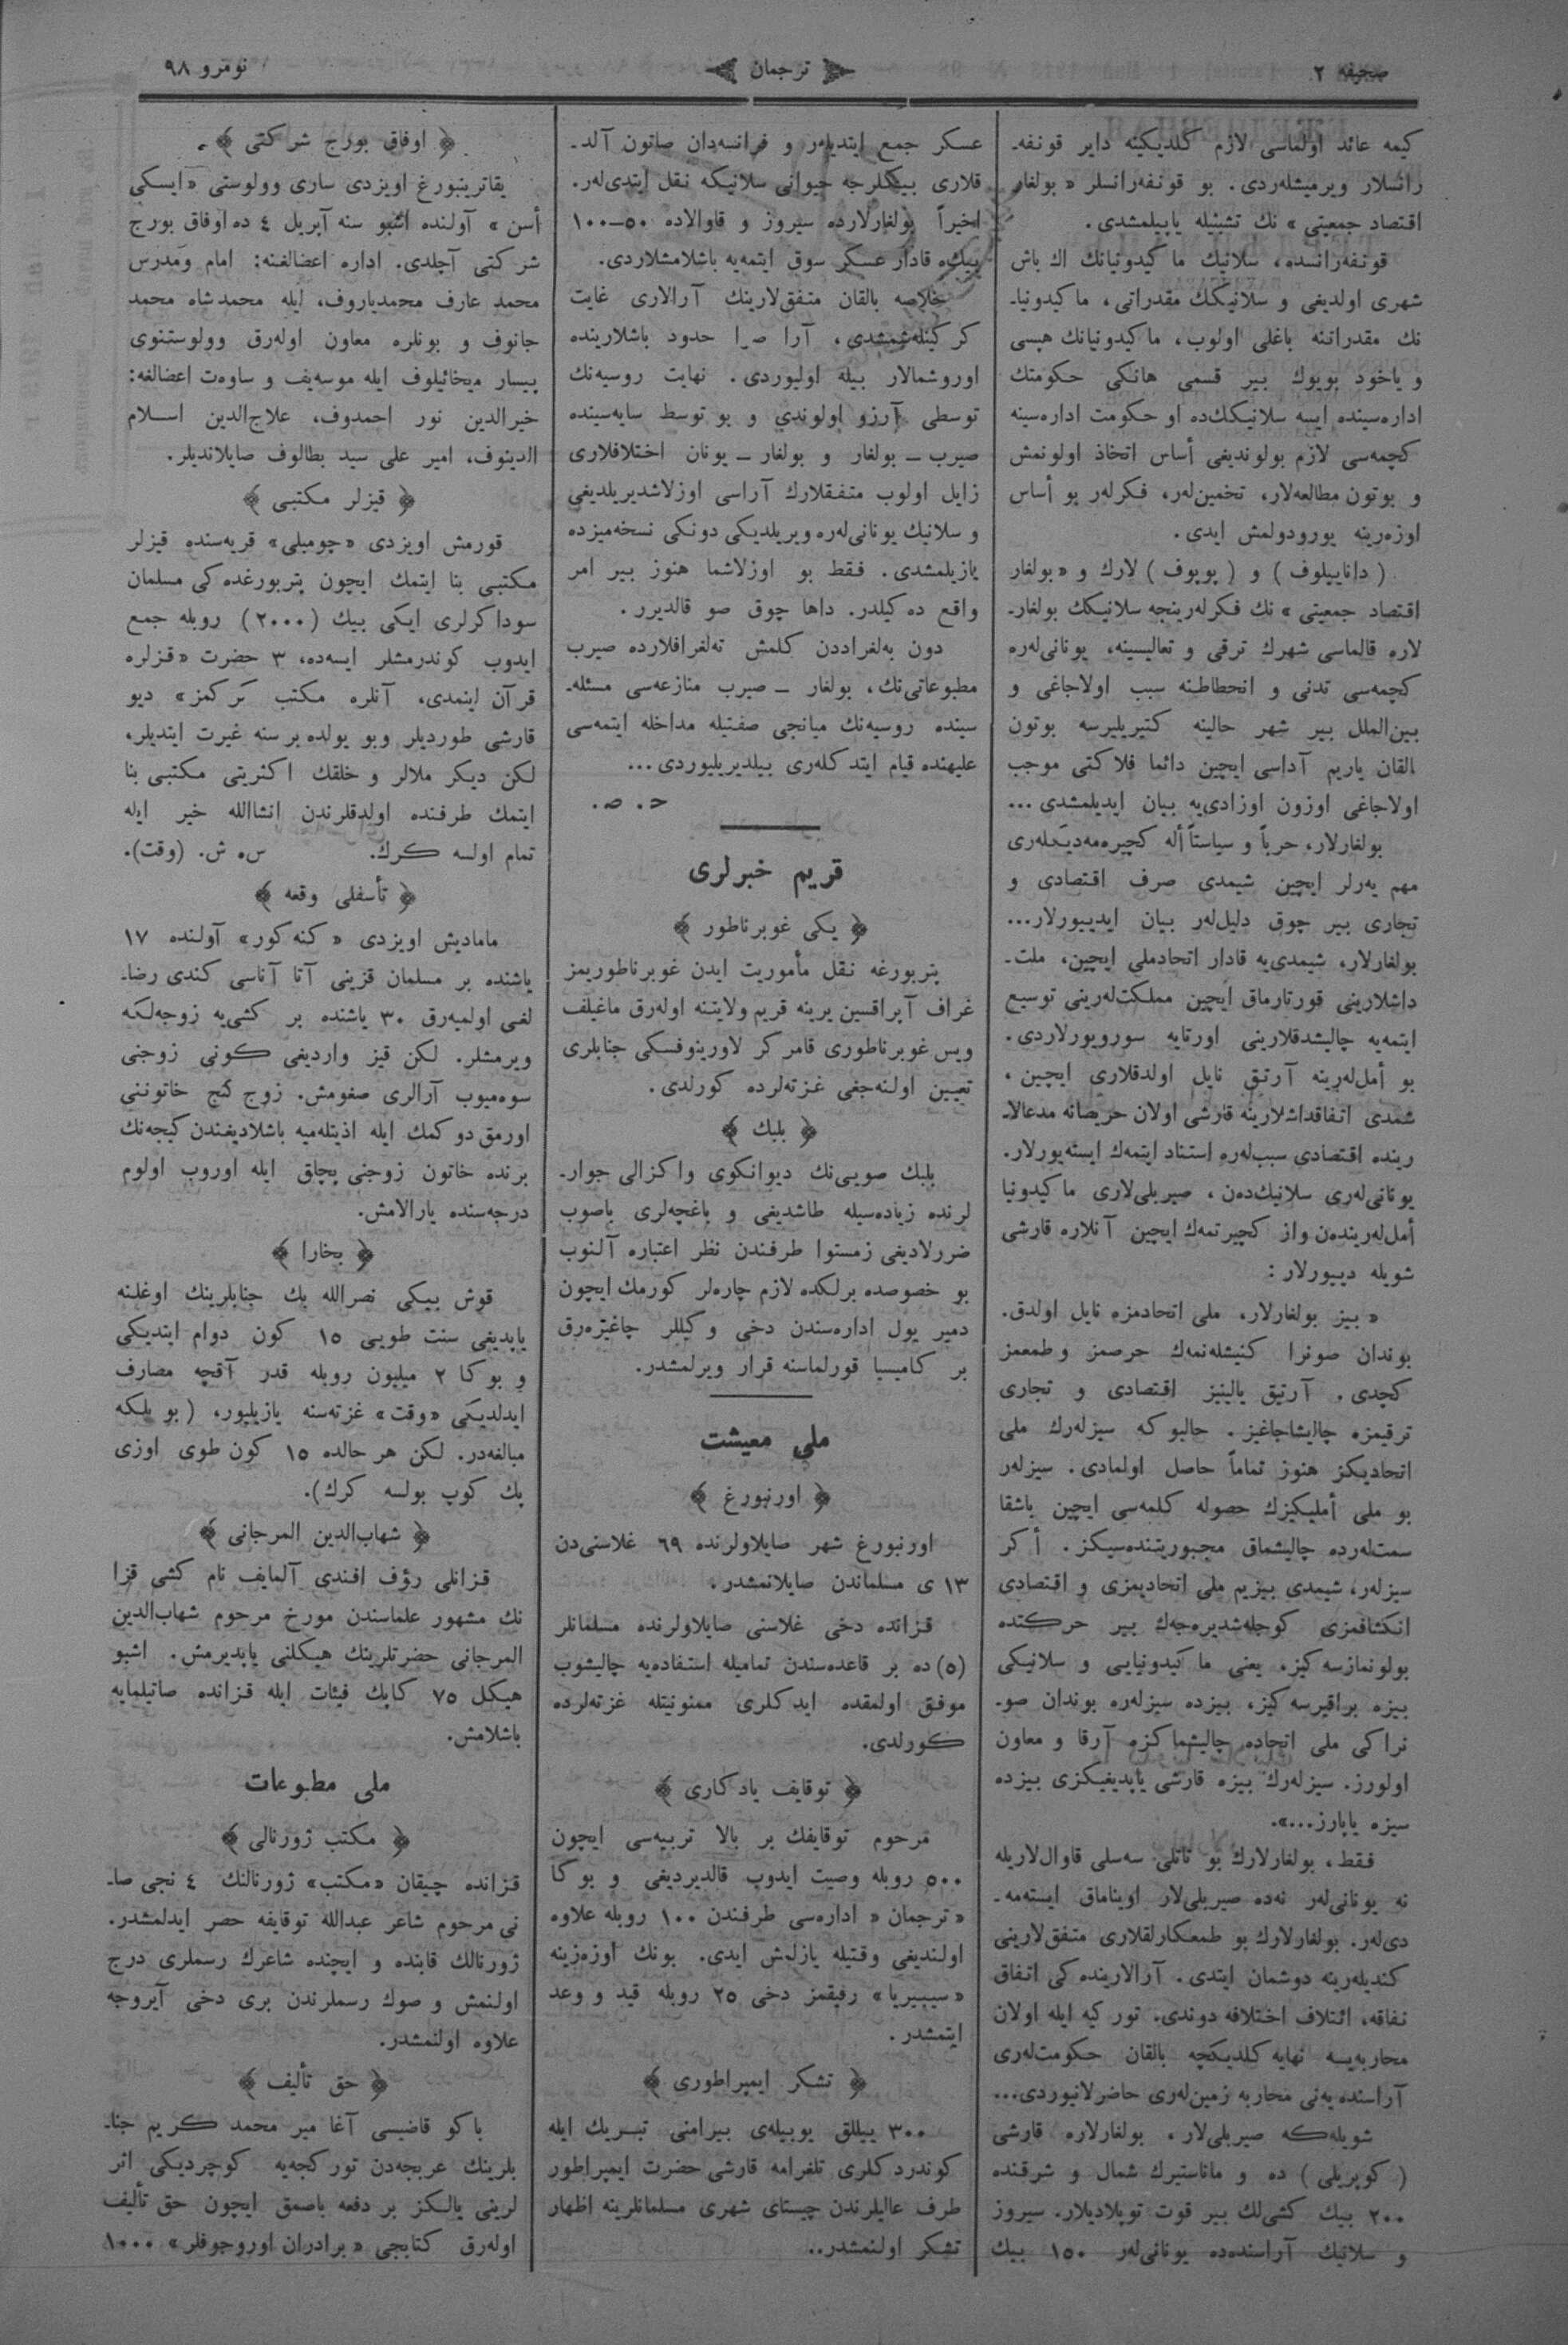 صحیفه ٢
ترجمان
نومرو ٩٨
كیمه عائد اولماسی لازم كلدیكینه دایر قونفه‌ـ
رانسلار ویرمیشله‌ردی. بو قونفه‌رانسلر «بولغار
اقتصاد جمعیتی» نك تشبثیله یاپیلمشدی.
قونفه‌رانسده، سلانیك ماكیدونیانك اك باش
شهری اولدیغی و سلانیكك مقدراتی، ماكیدونیاـ
نك مقدراتنه باغلی اولوب، ماكیدونیانك هپسی
و یاخود بویوك بیر قسمی هانكی حكومتك
اداره‌سینده ایسه سلانیكك‌ده او حكومت اداره‌سینه
كچمه‌سی لازم بولوندیغی أساس اتخاذ اولونمش
و بوتون مطالعه‌لار، تخمین‌لەر، فكرلەر بو أساس
اوزەرینه یورودولمش ایدی.
(داناییلوف) و (پوپوف) لارك و «بولغار
اقتصاد جمعیتی» نك فكرلەرینجه سلانیكك بولغارـ
لاره قالماسی شهرك ترقی و تعالیسینه، یونانی‌لەره
كچمه‌سی تدنی و انحطاطنه سبب اولاجاغی و
بین‌الملل بیر شهر حالینه كتیریلیرسه بوتون
بالقان یاریم آداسی ایچین دائما فلاكتی موجب
اولاجاغی اوزون اوزادی‌یه بیان ایدیلمشدی...
بولغارلار، حرباً و سیاستاً أله كچیرەمەدیكلەری
مهم یەرلر ایچین شیمدی صرف اقتصادی و
تجاری بیر چوق دلیل‌لەر بیان ایدییورلار...
بولغارلار، شیمدی‌یه قادار اتحادملی ایچین، ملت‌ـ
داشلارینی قورتارماق ایچین مملكت‌لەرینی توسیع
ایتمەیه چالیشدقلارینی اورتایه سورویورلاردی.
بو أمل‌لەرینه آرتیق نایل اولدقلاری ایچین،
شمدی اتفاقداشلارینه قارشی اولان حریصانه مدعالاـ
رینده اقتصادی سبب‌لەره استناد ایتمەك ایستەیورلار.
یونانی‌لەری سلانیك‌دەن، صیربلی‌لاری ماكیدونیا
أمل‌لەریندەن واز كچیرتمەك ایچین آنلاره قارشی
شویله دییورلار:
«بیز بولغارلار، ملی اتحادمزه نایل اولدق.
بوندان صونرا كنیشلەنمەك حرصمز وطمعمز
كچدی. آرتیق یالینیز اقتصادی و تجاری
ترقیمزه چالیشاجاغیز. حالبوكه سیزلەرك ملی
اتحادیكز هنوز تماماً حاصل اولمادی. سیزلەر
بو ملی أملیكیزك حصوله كلمه‌سی ایچین باشقا
سمت‌لەرده چالیشماق مجبوریتنده‌سیكز. أكر
سیزلەر، شیمدی بیزیم ملی اتحادیمزی و اقتصادی
انكشافمزی كوجلەشدیرەجەك بیر حركتده
بولونمازسه‌كیز، یعنی ماكیدونیایی و سلانیكی
بیزه براقیرسه‌كیز، بیزده سیزلەره بوندان صوـ
نراكی ملی اتحاده چالیشماكزه آرقا و معاون
اولورز. سیزلەرك بیزه قارشی یاپدیغیكزی بیزده
سیزه یاپارز...».
فقط، بولغارلارك بو تاتلی سەسلی قاوال‌لاریله
نه یونانی‌لەر نه‌ده صیربلی‌لار اویناماق ایستەمەـ
دی‌لەر. بولغارلارك بو طمعكارلقلاری متفق‌لارینی
كندیلەرینه دوشمان ایتدی. آرالارینده‌كی اتفاق
نفاقه، ائتلاف اختلافه دوندی. توركیه ایله اولان
محاربه‌یسه نهایه كلدیكچه بالقان حكومت‌لەری
آراسنده یەنی محاربه زمین‌لەری حاضرلانیوردی...
شویلەكه صیربلی‌لار، بولغارلاره قارشی
(كوپریلی) ده و ماناستیرك شمال و شرقنده
٢٠٠ بیك كشی‌لك بیر قوت توپلادیلار. سیروز
و سلانیك آراسنده‌ده یونانی‌لەر ١٥٠ بیك
عسكر جمع ایتدیلەر و فرانسەدان صاتون آلدـ
قلاری بیكلرجه حیوانی سلانیكه نقل ایتدی‌لەر.
اخیراً بولغارلارده سیروز و قاوالاده ٥٠—١٠٠
بیكه قادار عسكر سوق ایتمەیه باشلامشلاردی.
خلاصه بالقان متفق‌لارینك آرالاری غایت
كركینلەشمشدی، آرا صرا حدود باشلارینده
اوروشمالار بیله اولیوردی. نهایت روسیه‌نك
توسطی آرزو اولوندی و بو توسط سایه‌سینده
صیرب ـ بولغار و بولغار ـ یونان اختلافلاری
زایل اولوب متفقلارك آراسی اوزلاشدیریلدیغی
و سلانیك یونانی‌لەره ویریلدیكی دونكی نسخه‌میزده
یازیلمشدی. فقط بو اوزلاشما هنوز بیر امر
واقع ده‌كیلدر. داها چوق صو قالدیرر.
دون بەلغراددن كلمش تەلغرافلارده صیرب
مطبوعاتی‌نك، بولغار ـ صیرب منازعه‌سی مسئله‌ـ
سینده روسیه‌نك میانجی صفتیله مداخله ایتمه‌سی
علیهنده قیام ایتدكلەری بیلدیریلیوردی...
ح. ص.
قریم خبرلری
﴿ یكی غوبرناطور ﴾
پتربورغه نقل مأموریت ایدن غوبرناطوریمز
غراف آپراقسین یرینه قریم ولایتنه اوله‌رق ماغیلف
ویس غوبرناطوری قامركر لاورینوفسكی جنابلری
تعیین اولنه‌جغی غزته‌لرده كورلدی.
﴿ بلبك ﴾
بلبك صویی‌نك دیوانكوی واكزالی جوارـ
لرنده زیاده‌سیله طاشدیغی و باغچه‌لری باصوب
ضررلادیغی زمستوا طرفندن نظر اعتباره آلنوب
بو خصوصده برلكده لازم چاره‌لر كورمك ایچون
دمیر یول اداره‌سندن دخی وكیللر چاغیره‌رق
بر كامیسیا قورلماسنه قرار ویرلمشدر.
ملی معیشت
﴿ اورنبورغ ﴾
اورنبورغ شهر صایلاولرنده ٦٩ غلاسنی‌دن
١٣ ی مسلماندن صایلانمشدر.
قزانده دخی غلاسنی صایلاولرنده مسلمانلر
(٥) ده بر قاعده‌سندن تمامیله استفاده‌یه چالیشوب
موفق اولمقده ایدكلری ممنونیتله غزته‌لرده
كورلدی.
﴿ توقایف یادكاری ﴾
مرحوم توقایفك بر بالا تربیه‌سی ایچون
٥٠٠ روبله وصیت ایدوب قالدیردیغی و بوكا
«ترجمان» اداره‌سی طرفندن ١٠٠ روبله علاوه
اولندیغی وقتیله یازلمش ایدی. بونك اوزه‌رینه
«سیبیریا» رفیقمز دخی ٢٥ روبله قید و وعد
ایتمشدر.
﴿ تشكر ایمپراطوری ﴾
٣٠٠ ییللق یوبیله‌ی بیرامنی تبریك ایله
كوندردكلری تلغرامه قارشی حضرت ایمپراطور
طرف عالیلرندن چیستای شهری مسلمانلرینه اظهار
تشكر اولنمشدر..
﴿ اوفاق بورج شركتی ﴾
یقاترینبورغ اویزدی ساری وولوستی «ایسكی
أسن» آولنده اشبو سنه آپریل ٤ ده اوفاق بورج
شركتی آچلدی. اداره اعضالغنه: امام ومدرس
محمد عارف محمدیاروف، ایله محمدشاه محمد
جانوف و بونلره معاون اوله‌رق وولوستنوی
پیسار میخائیلوف ایله موسه‌یف و ساوه‌ت اعضالغه:
خیرالدین نور احمدوف، علاج‌الدین اسلام
الدینوف، امیر علی سید بطالوف صایلاندیلر.
﴿ قیزلر مكتبی ﴾
قورمش اویزدی «چومبلی» قریه‌سنده قیزلر
مكتبی بنا ایتمك ایچون پتربورغده‌كی مسلمان
سوداكرلری ایكی بیك (٢٠٠٠) روبله جمع
ایدوب كوندرمشلر ایسه‌ده، ٣ حضرت «قزلره
قرآن اینمدی، آنلره مكتب كركمز» دیو
قارشی طوردیلر وبو یولده بر سنه غیرت ایتدیلر،
لكن دیكر ملالر و خلقك اكثریتی مكتبی بنا
ایتمك طرفنده اولدقلرندن انشاالله خیر ایله
تمام اولسه كرك. س. ش. (وقت).
﴿ تأسفلی وقعه ﴾
مامادیش اویزدی «كنه‌كور» آولنده ١٧
یاشنده بر مسلمان قزینی آتا آناسی كندی رضاـ
لغی اولمیه‌رق ٣٠ یاشنده بر كشی‌یه زوجه‌لكه
ویرمشلر. لكن قیز واردیغی كونی زوجنی
سوه‌میوب آرالری صغومش. زوج كنج خاتوننی
اورمق دوكمك ایله اذیتله‌میه باشلادیغندن كیجه‌نك
برنده خاتون زوجنی پچاق ایله اوروب اولوم
درجه‌سنده یارالامش.
﴿ بخارا ﴾
قوش بیكی نصرالله بك جنابلرینك اوغلنه
یاپدیغی سنت طویی ١٥ كون دوام ایتدیكی
و بوكا ٢ میلیون روبله قدر آقچه مصارف
ایدلدیكی «وقت» غزته‌سنه یازیلیور، (بو بلكه
مبالغه‌در. لكن هر حالده ١٥ كون طوی اوزی
پك كوب بولسه كرك).
﴿ شهاب‌الدین المرجانی ﴾
قزانلی رؤف افندی آلمایف نام كشی قزا
نك مشهور علماسندن مورخ مرحوم شهاب‌الدین
المرجانی حضرتلرینك هیكلنی یاپدیرمش. اشبو
هیكل ٧٥ كاپك فیئات ایله قزانده صاتیلمایه
باشلامش.
ملی مطبوعات
﴿ مكتب ژورنالی ﴾
قزانده چیقان «مكتب» ژورنالنك ٤ نجی صاـ
نی مرحوم شاعر عبدالله توقایفه حصر ایدلمشدر.
ژورنالك قابنده و ایچنده شاعرك رسملری درج
اولنمش و صوك رسملرندن بری دخی آیروجه
علاوه اولنمشدر.
﴿ حق تألیف ﴾
باكو قاضیسی آغا میر محمد كریم جناـ
بلرینك عربجه‌دن توركجه‌یه كوچردیكی اثر
لرینی یالكز بر دفعه باصمق ایچون حق تألیف
اوله‌رق كتابجی «برادران اوروجوفلر» ١٠٠٠